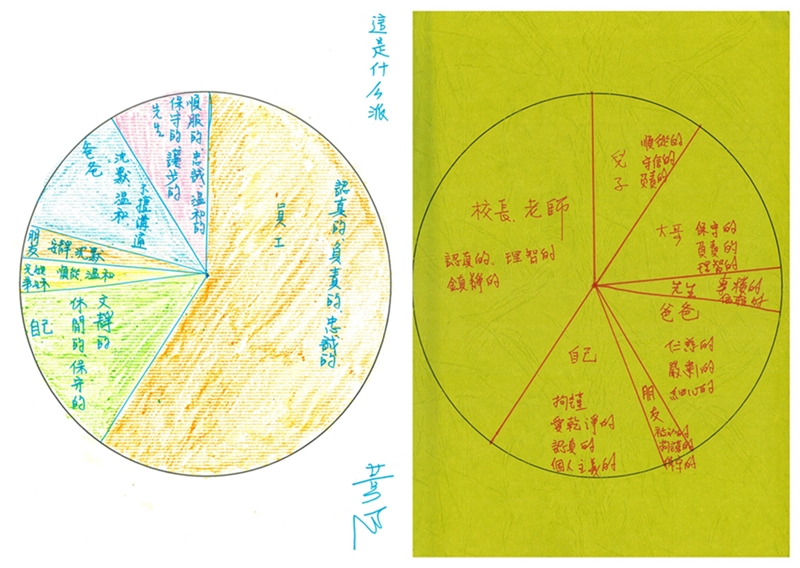 這是什么派
員工
認真的 負責的 忠誠的
先生
保守的 謙步的
順服的 忠誠 溫和的
爸爸
沈默 溫和
不擅溝通
朋友
安靜 沈默
兄弟
姐妹
順從 溫和
自己
文靜的
休閒的 保守的
校長 老師
認真的 理智的
鎮靜的
兒子
順從的
守信的
負責的
大哥
保守的
負責的
理智的
先生
爸爸
仁慈的
嚴肅的
細心的
朋友
拘謹的
保守的
自己
拘謹
愛乾淨的
認真的
個人主義的